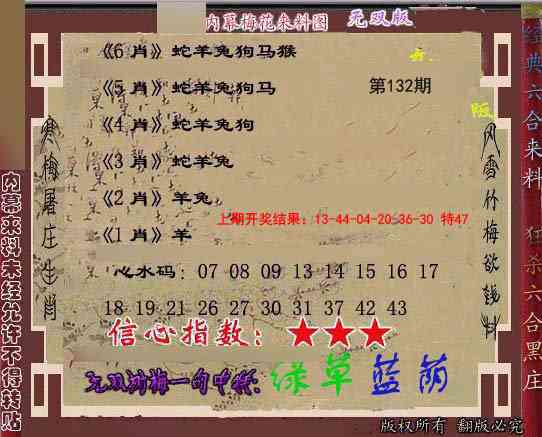 内幕梅花来料图 无双版
《6 肖》蛇羊兔狗马猴
《5 肖》蛇羊兔狗马 第132期
《4 肖》蛇羊兔狗
《3 肖》蛇羊兔
《2 肖》羊兔
上期开奖结果：13-44-04-20-36-30 特47
《1 肖》羊
心水码： 07 08 09 13 14 15 16 17
18 19 21 26 27 30 31 37 42 43
信心指数：★★★
无双对梅一句中特：绿草蓝荫
版权所有 翻版必究
寒梅屠庄生肖
风雪竹梅欲钱料
内幕来料未经允许不得转贴
经典六合来料 狂杀六合黑庄